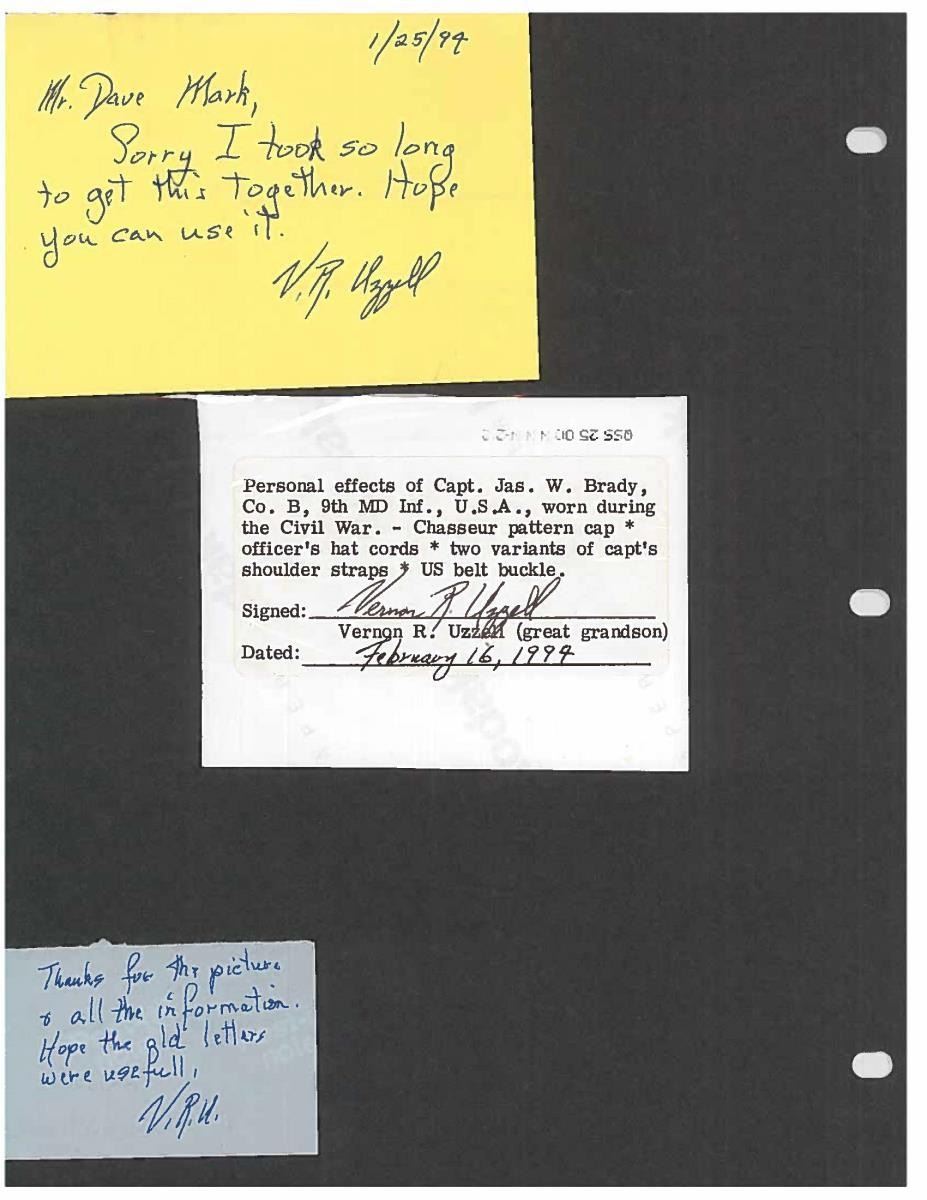 1/25/94
Mr. Dave Mark,
Sorry I took so long
to get this together. Hope
you can use it.
V.R. Uzzell
Personal effects of Capt. Jas. W. Brady,
Co. B, 9th MD Inf., U.S.A., worn during
the Civil War. - Chasseur pattern cap *
officer's hat cords * two variants of capt's
shoulder straps * US belt buckle.
Signed: Vernon R. Uzzell
Vernon R. Uzzell (great grandson)
Dated: February 16, 1994
Thanks for the picture
& all the information.
Hope the old letters
were usefull,
V.R.U.